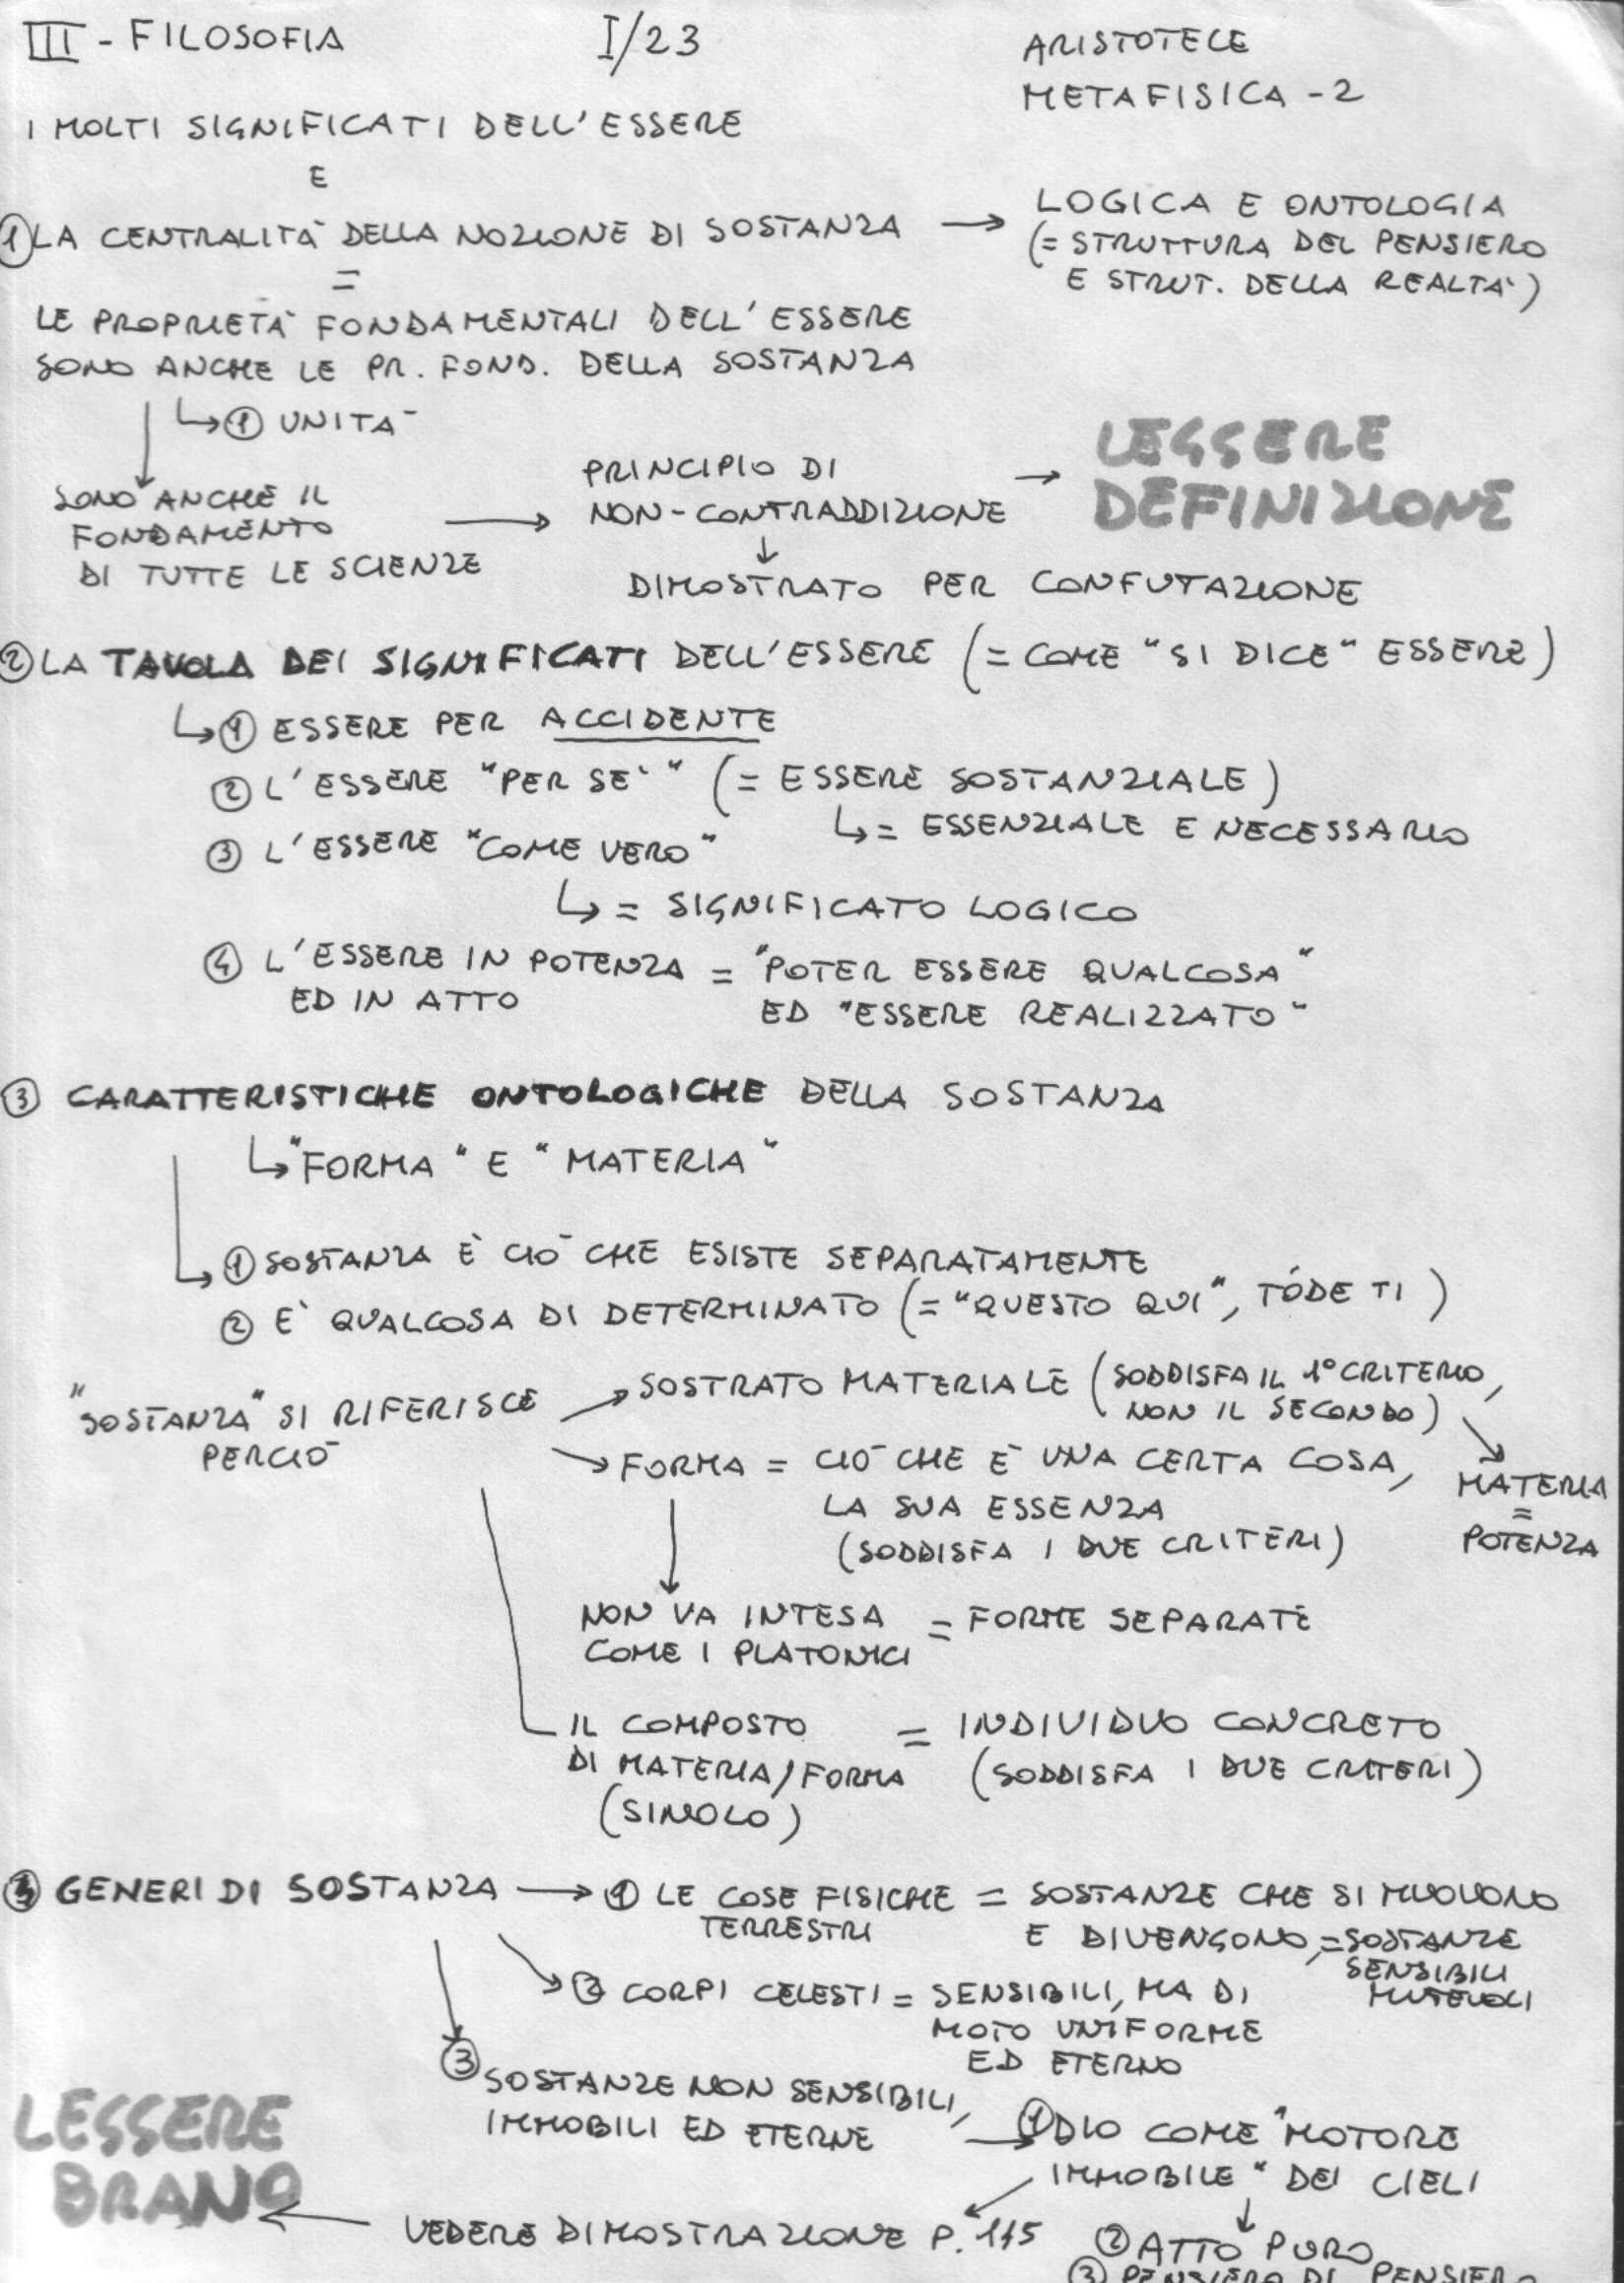 III - FILOSOFIA
I/23
ARISTOTELE
METAFISICA - 2
I MOLTI SIGNIFICATI DELL'ESSERE
E
① LA CENTRALITÀ DELLA NOZIONE DI SOSTANZA →
LOGICA E ONTOLOGIA
(= STRUTTURA DEL PENSIERO
E STRUT. DELLA REALTÀ)
=
LE PROPRIETÀ FONDAMENTALI DELL'ESSERE
SONO ANCHE LE PR. FOND. DELLA SOSTANZA
↳ ① UNITÀ
SONO ANCHE IL
FONDAMENTO
DI TUTTE LE SCIENZE →
PRINCIPIO DI
NON-CONTRADDIZIONE →
LEGGERE
DEFINIZIONE
↓
DIMOSTRATO PER CONFUTAZIONE
② LA TAVOLA DEI SIGNIFICATI DELL'ESSERE (= COME "SI DICE" ESSERE)
↳ ① ESSERE PER ACCIDENTE
② L'ESSERE "PER SE'" (= ESSERE SOSTANZIALE)
↳ = ESSENZIALE E NECESSARIO
③ L'ESSERE "COME VERO"
↳ = SIGNIFICATO LOGICO
④ L'ESSERE IN POTENZA = "POTER ESSERE QUALCOSA"
ED IN ATTO ED "ESSERE REALIZZATO"
③ CARATTERISTICHE ONTOLOGICHE DELLA SOSTANZA
↳ "FORMA" E "MATERIA"
↳ ① SOSTANZA È CIÒ CHE ESISTE SEPARATAMENTE
② E' QUALCOSA DI DETERMINATO (= "QUESTO QUI", TÓDE TI)
"SOSTANZA" SI RIFERISCE
PERCIÒ
→ SOSTRATO MATERIALE (SODDISFA IL 1° CRITERIO,
NON IL SECONDO)
→ FORMA = CIÒ CHE È UNA CERTA COSA,
LA SUA ESSENZA
(SODDISFA I DUE CRITERI)
MATERIA
=
POTENZA
NON VA INTESA = FORME SEPARATE
COME I PLATONICI
IL COMPOSTO = INDIVIDUO CONCRETO
DI MATERIA/FORMA (SODDISFA I DUE CRITERI)
(SINOLO)
④ GENERI DI SOSTANZA → ① LE COSE FISICHE = SOSTANZE CHE SI MUOVONO
TERRESTRI E DIVENGONO, = SOSTANZE
SENSIBILI
MUTEVOLI
② CORPI CELESTI = SENSIBILI, MA DI
MOTO UNIFORME
ED ETERNO
③ SOSTANZE NON SENSIBILI,
IMMOBILI ED ETERNE →
① DIO COME "MOTORE
IMMOBILE" DEI CIELI
LEGGERE
BRANO
← VEDERE DIMOSTRAZIONE P. 115
② ATTO PURO
③ PENSIERO DI PENSIERO